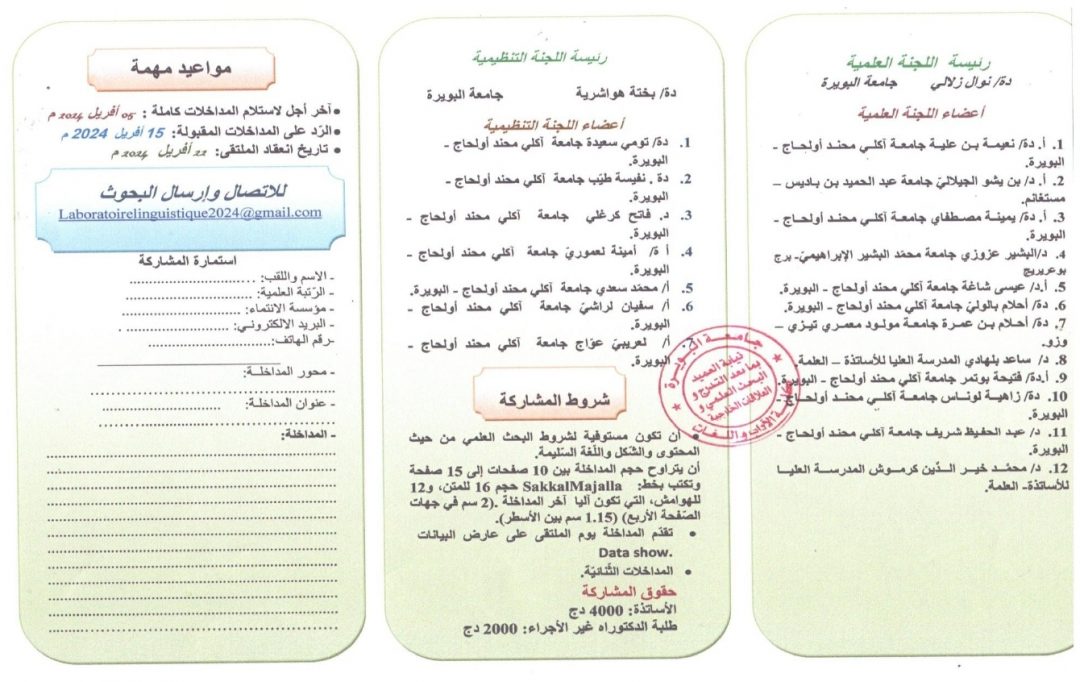 رئيسة اللجنة العلمية
دة/ نوال زلالي جامعة البويرة
أعضاء اللجنة العلمية
1. أ. دة/ نعيمة بن علية جامعة آكلي محند أولحاج -
البويرة.
2. أ. د/ بن يشو الجيلاليّ جامعة عبد الحميد بن باديس –
مستغانم.
3. أ. دة/ يمينة مصطفاي جامعة آكلي محند أولحاج -
البويرة.
4. د/البشير عزوزي جامعة محمّد البشير الإبراهيميّ- برج
بوعريريج
5. أ.د/ عيسى شاغة جامعة آكلي محند أولحاج - البويرة.
6. دة/ أحلام بالوليّ جامعة آكلي محند أولحاج - البويرة.
7. دة/ أحلام بن عمرة جامعة مولود معمري تيزي –
وزو.
8. د/ ساعد بلهادي المدرسة العليا للأساتذة – العلمة
9. أ.دة/ فتيحة بوتمر جامعة آكلي محند أولحاج - البويرة.
10. دة/ زاهية لوناس جامعة آكلي محند أولحاج -
البويرة.
11. د/ عبد الحفيظ شريف جامعة آكلي محند أولحاج -
البويرة.
12. د/ محمّد خير الدّين كرموش المدرسة العليا
للأساتذة– العلمة.
رئيسة اللجنة التنظيمية
دة/ بختة هواشرية جامعة البويرة
أعضاء اللجنة التنظيمية
1. دة/ تومي سعيدة جامعة آكلي محند أولحاج -
البويرة.
2. دة . نفيسة طيّب جامعة آكلي محند أولحاج -
البويرة.
3. د. فاتح كرغلي جامعة آكلي محند أولحاج -
البويرة.
4. أ ة/ أمينة لعموريّ جامعة آكلي محند أولحاج -
البويرة.
5. أ/ محمّد سعدي جامعة آكلي محند أولحاج - البويرة.
6. أ/ سفيان لراشيّ جامعة آكلي محند أولحاج -
البويرة.
أ/ لعريبيّ عوّاج جامعة آكلي محند أولحاج -
البويرة.
جامعة البويرة
نيابة العميد
بما بعد التدرج و
البحث العلمي و
العلاقات الخارجية
كلية الآداب واللغات
شروط المشاركة
• أن تكون مستوفية لشروط البحث العلمي من حيث
المحتوى والشّكل واللّغة السّليمة.
أن يتراوح حجم المداخلة بين 10 صفحات إلى 15 صفحة
وتكتب بخط: SakkalMajalla حجم 16 للمتن، و12
للهوامش، التي تكون آليا آخر المداخلة .(2 سم في جهات
الصّفحة الأربع) (1.15 سم بين الأسطر).
• تقدّم المداخلة يوم الملتقى على عارض البيانات
Data show.
• المداخلات الثّنائيّة.
حقوق المشاركة
الأساتذة: 4000 دج
طلبة الدكتوراه غير الأجراء: 2000 دج
مواعيد مهمة
• آخر أجل لاستلام المداخلات كاملة : 05 أفريل 2024 م
• الرّد على المداخلات المقبولة: 15 أفريل 2024 م
• تاريخ انعقاد الملتقى: 22 أفريل 2024 م
للاتصال وإرسال البحوث
Laboratoirelinguistique2024@gmail.com
استمارة المشاركة
- الاسم واللقب: ..............................
- الرّتبة العلمية: ..............................
- مؤسسة الانتماء: ..............................
- البريد الالكتروني: ..............................
-رقم الهاتف: ..............................
- محور المداخلة: ..............................
- عنوان المداخلة: ..............................
- المداخلة: ..............................